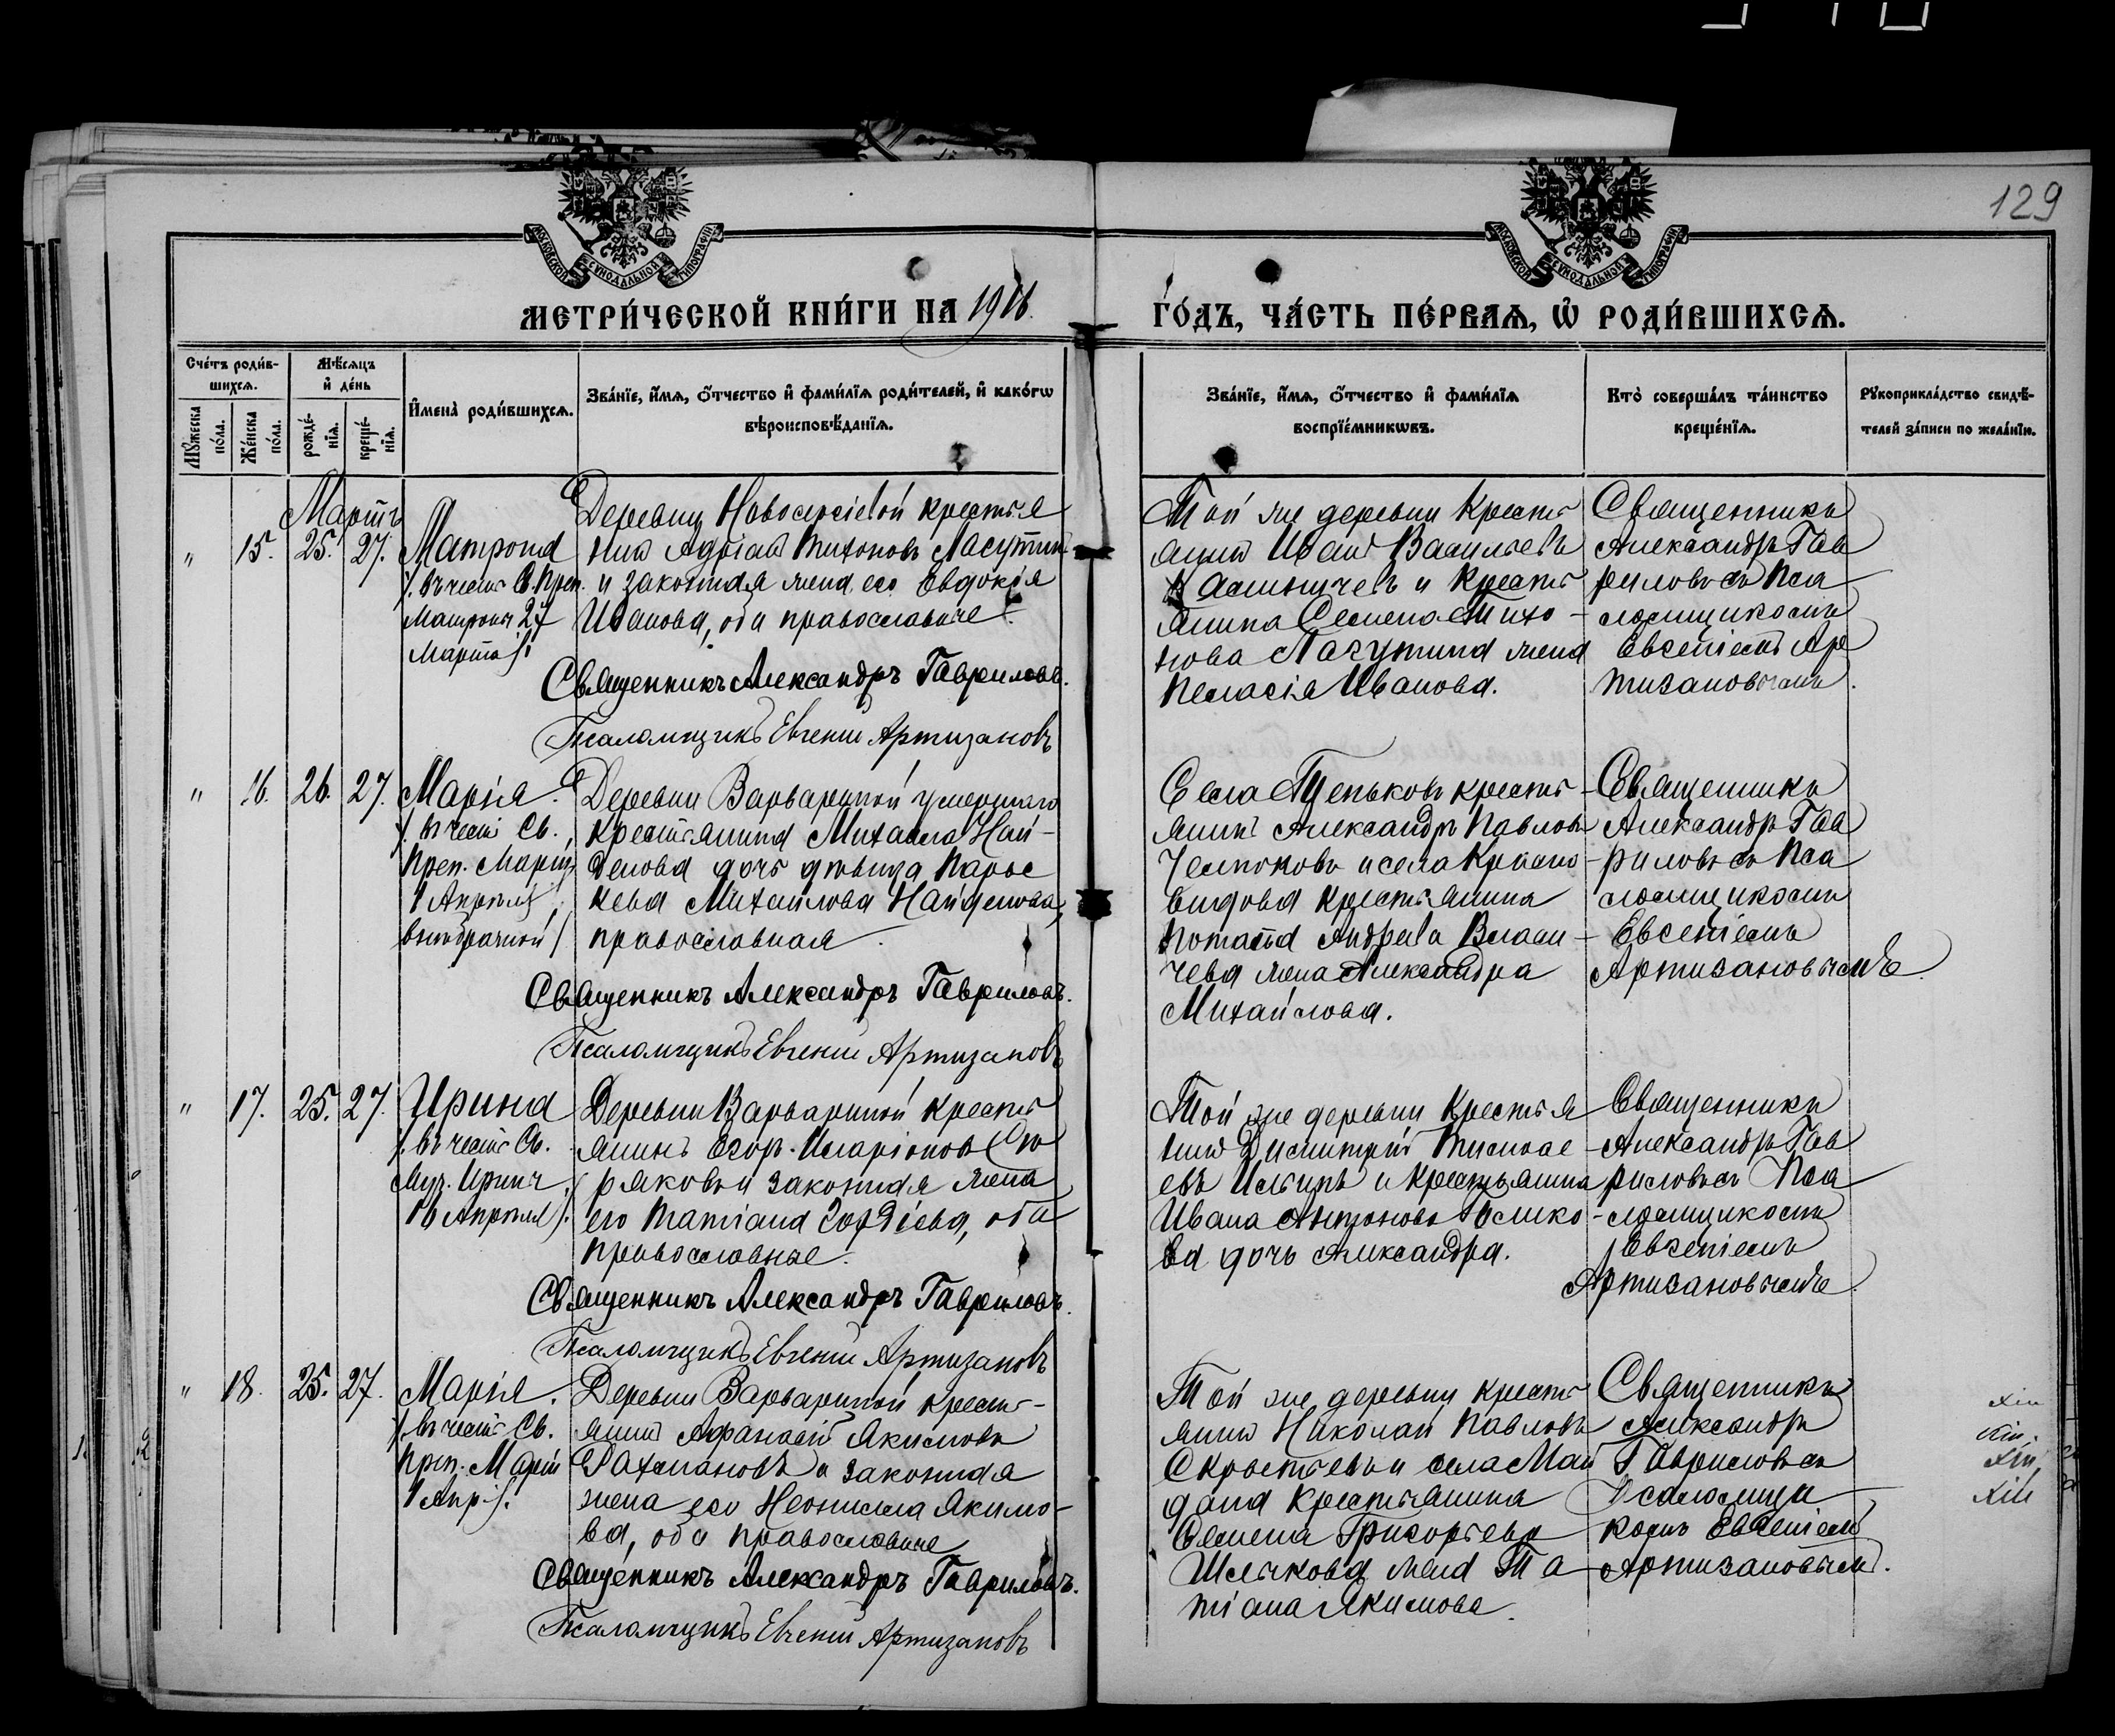 129
МОСКОВСКОЙ СѴНОДАЛЬНОЙ ТИПОГРАФІИ
МОСКОВСКОЙ СѴНОДАЛЬНОЙ ТИПОГРАФІИ
МЕТРИ́ЧЕСКОЙ КНИ́ГИ НА 1916
ГО́ДЪ, ЧА́СТЬ ПЕ́РВАЯ, Ѡ҆ РОДИ́ВШИХСЯ.
Сче́тъ роди́в-
шихся.
Мѣ́сяцъ
и҆ де́нь
Мꙋ́жеска
по́ла.
Же́нска
по́ла.
рожде́-
нїя.
креще́-
нїя.
И҆мена̀ роди́вшихся.
Зва́нїе, и҆́мя, ѻ҆́тчество и҆ фами́лїя роди́телей, и҆ како́гѡ
вѣроисповѣ́данїя.
Зва́нїе, и҆́мя, ѻ҆́тчество и҆ фами́лїя
воспрїе́мникѡвъ.
Кто̀ соверша́лъ та́инство
креще́нїя.
Рꙋкоприкла́дство свидѣ́-
телей за́писи по жела́нїю.
Мартъ
" 15. 25. 27. Матрона
/въ честь Св. Преп.
Матроны 27
Марта/
Деревни Новосерсіевой крестья
нинъ Адріанъ Тихоновъ Ласутин
и законная жена его Евдокія
Иванова, оба православные.
Священникъ Александръ Гавриловъ.
Псаломщикъ Евгеній Артизановъ
Той же деревни крестья
анинъ Иванъ Васильевъ
и крестья
янина Семена Тихо-
нова Ласутина жена
Пелагія Иванова.
Священникъ
Александръ Гав
риловъ съ Пса
ломщикомъ
Евгеніемъ Ар
тизановымъ.
" 16. 26. 27. Марія.
/въ честь Св.
Преп. Маріи
1 Апрѣля,
внѣбрачной/
Деревни Варвариной умершаго
крестьянина Михаила Най-
денова дочь дѣвица Парас
кева Михаилова Найденова,
православная.
Священникъ Александръ Гавриловъ.
Псаломщикъ Евгеній Артизановъ
Села крестья-
янинъ Александръ Павловъ
и села
крестьянина
Андреева Власи-
чева жена Александра
Михайлова.
Священникъ
Александръ Гав
риловъ съ Пса
ломщикомъ
Евгеніемъ
Артизановымъ.
" 17. 25. 27. Ирина
/въ честь Св.
Муч. Ирины
16 Апрѣля/.
Деревни Варвариной крестья
янинъ Егоръ Иларіоновъ Сю
ряковъ и законная жена
его Татіана, оба
православные.
Священникъ Александръ Гавриловъ.
Псаломщикъ Евгеній Артизановъ
Той же деревни крестья
нинъ Димитрій Тимофе-
евъ Ильинъ и крестьянина
Ивана Антонова
ва дочь Александра.
Священникъ
Александръ Гав
риловъ съ Пса
ломщикомъ
Евгеніемъ
Артизановымъ.
" 18. 25. 27. Марія.
/въ честь Св.
Преп. Маріи
1 Апр./.
Деревни Варвариной кресть-
янинъ Афанасій Якимовъ
Рахмановъ и законная
жена его Неонилла Якимо-
ва, оба православные
Священникъ Александръ Гавриловъ.
Псаломщикъ Евгеній Артизановъ
Той же деревни кресть
янинъ Николай Павловъ
и села Май
дана крестьянина
Семена Григорьева
жена Та-
тіана Якимова.
Священникъ
Александръ
Гавриловъ съ
Псаломщи
комъ Евгеніемъ
Артизановымъ.